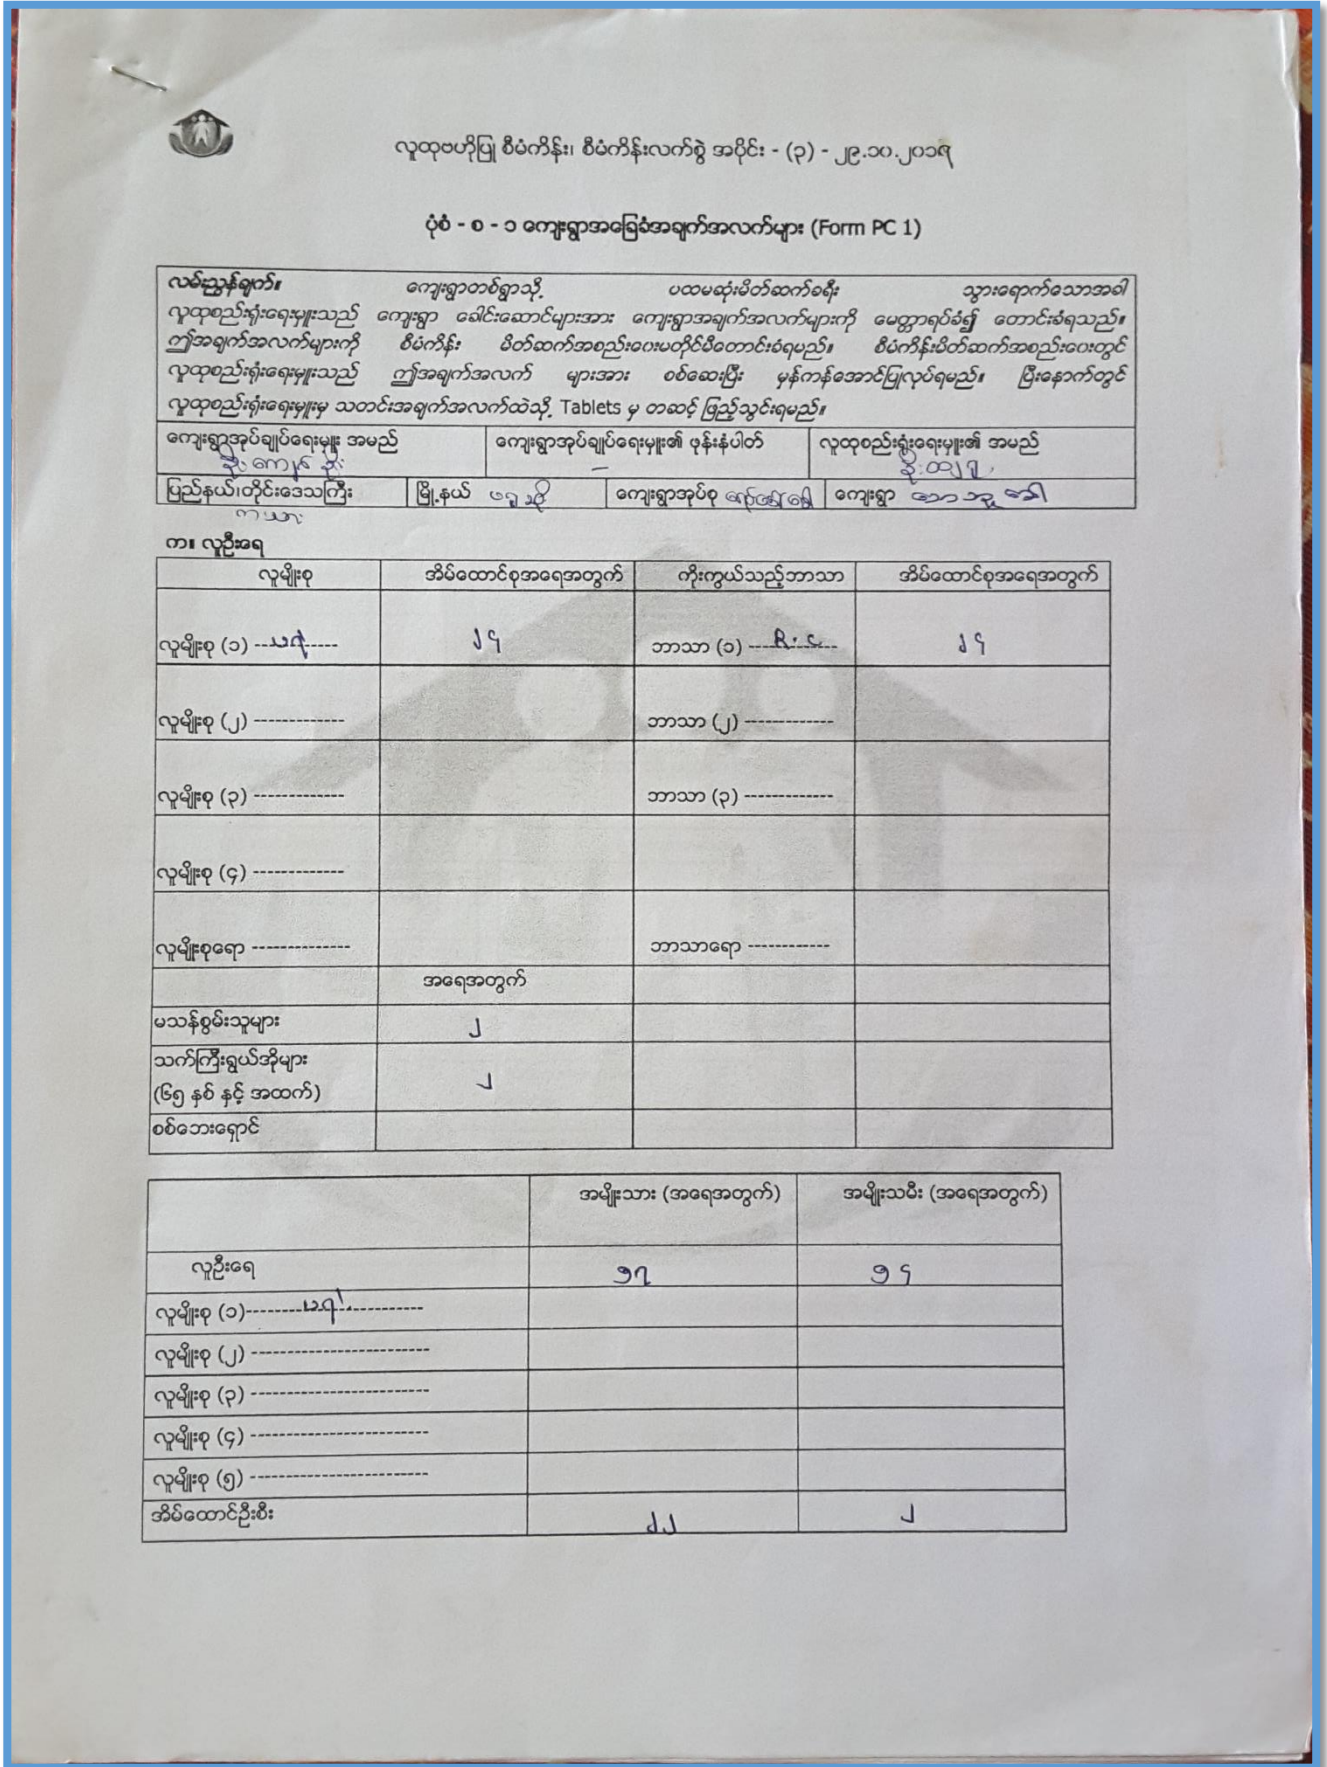 လူထုဗဟိုပြု စီမံကိန်း၊ စီမံကိန်းလက်စွဲ အပိုင်း - (၃) - ၂၉.၁၀.၂၀၁၅
ပုံစံ - စ - ၁ ကျေးရွာအခြေခံအချက်အလက်များ (Form PC 1)
လမ်းညွှန်ချက်။ ကျေးရွာတစ်ရွာသို့ ပထမဆုံးမိတ်ဆက်ခရီး သွားရောက်သောအခါ
လူထုစည်းရုံးရေးမှူးသည် ကျေးရွာ ခေါင်းဆောင်များအား ကျေးရွာအချက်အလက်များကို မေတ္တာရပ်ခံ၍ တောင်းခံရသည်။
ဤအချက်အလက်များကို စီမံကိန်း မိတ်ဆက်အစည်းဝေးမတိုင်မီတောင်းခံရမည်။ စီမံကိန်းမိတ်ဆက်အစည်းဝေးတွင်
လူထုစည်းရုံးရေးမှူးသည် ဤအချက်အလက် များအား စစ်ဆေးပြီး မှန်ကန်အောင်ပြုလုပ်ရမည်။ ပြီးနောက်တွင်
လူထုစည်းရုံးရေးမှူးမှ သတင်းအချက်အလက်ထဲသို့ Tablets မှ တဆင့် ဖြည့်သွင်းရမည်။
ကျေးရွာအုပ်ချုပ်ရေးမှူး အမည် ကျေးရွာအုပ်ချုပ်ရေးမှူး၏ ဖုန်းနံပါတ် လူထုစည်းရုံးရေးမှူး၏ အမည်
–
ပြည်နယ်၊တိုင်းဒေသကြီး မြို့နယ် ဖရူဆို ကျေးရွာအုပ်စု ကျေးရွာ
ကယား
က။ လူဦးရေ
လူမျိုးစု အိမ်ထောင်စုအရေအတွက် ကိုးကွယ်သည့်ဘာသာ အိမ်ထောင်စုအရေအတွက်
လူမျိုးစု (၁) ------------- ၂၄ ဘာသာ (၁) --- R.C --- ၂၄
လူမျိုးစု (၂) ------------- ဘာသာ (၂) -------------
လူမျိုးစု (၃) ------------- ဘာသာ (၃) -------------
လူမျိုးစု (၄) -------------
လူမျိုးစုရော -------------- ဘာသာရော ------------
အရေအတွက်
မသန်စွမ်းသူများ ၂
သက်ကြီးရွယ်အိုများ
(၆၅ နှစ် နှင့် အထက်) ၂
စစ်ဘေးရှောင်
အမျိုးသား (အရေအတွက်) အမျိုးသမီး (အရေအတွက်)
လူဦးရေ ၅၇ ၅၄
လူမျိုးစု (၁)--------------------------
လူမျိုးစု (၂) --------------------------
လူမျိုးစု (၃) --------------------------
လူမျိုးစု (၄) --------------------------
လူမျိုးစု (၅) --------------------------
အိမ်ထောင်ဦးစီး ၂၂ ၂